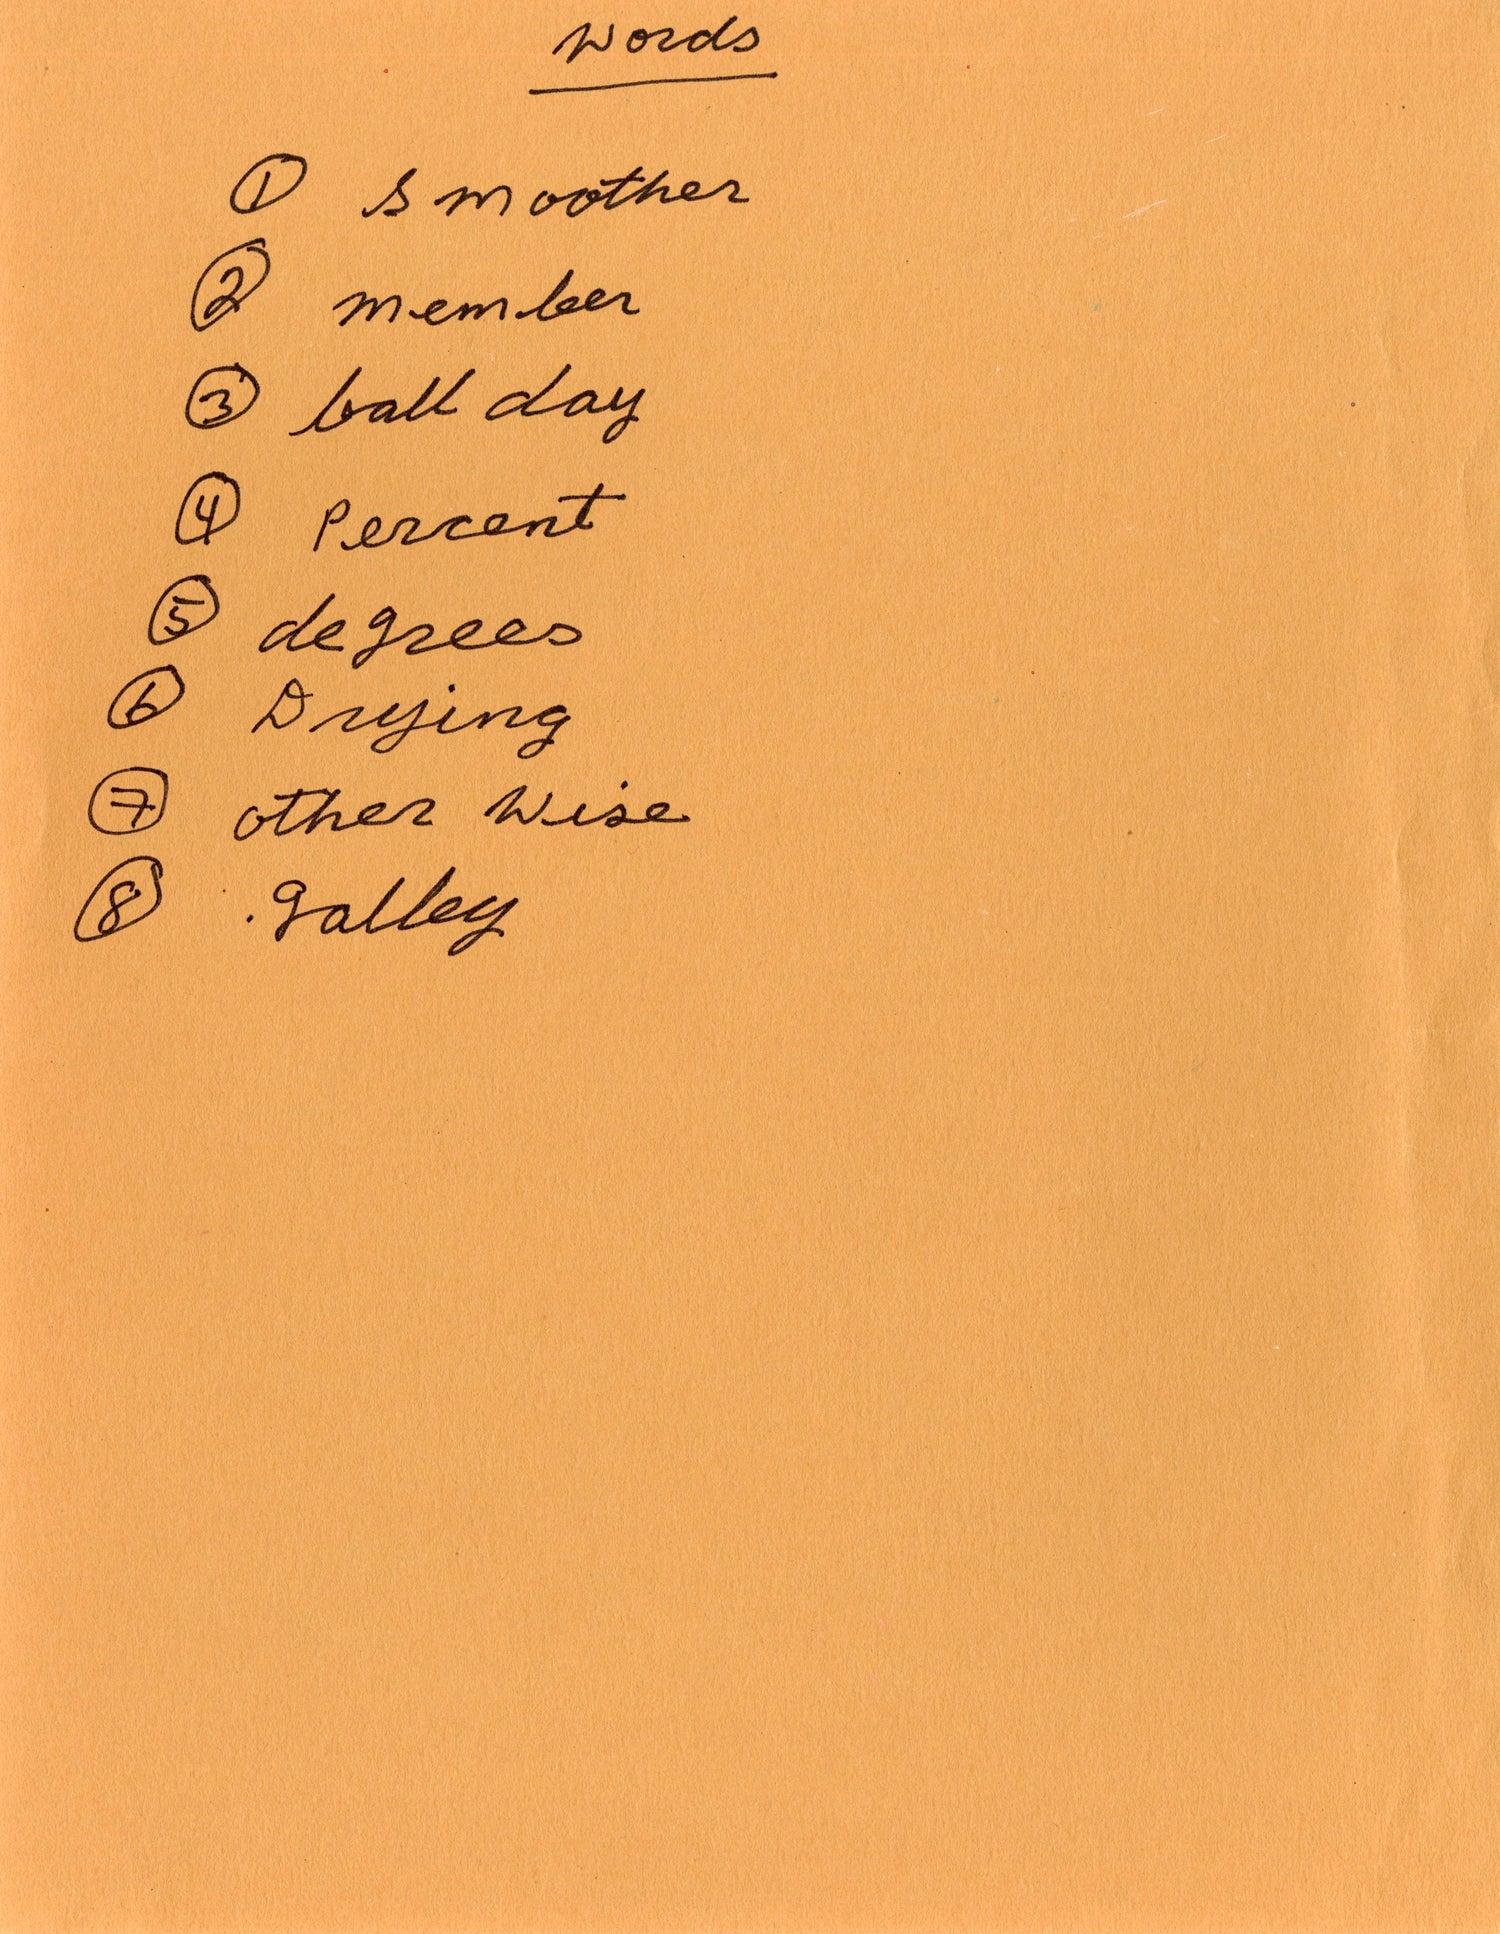 Words
① Smoother
② member
③ ball day
④ Percent
⑤ degrees
⑥ Drying
⑦ other wise
⑧ galley